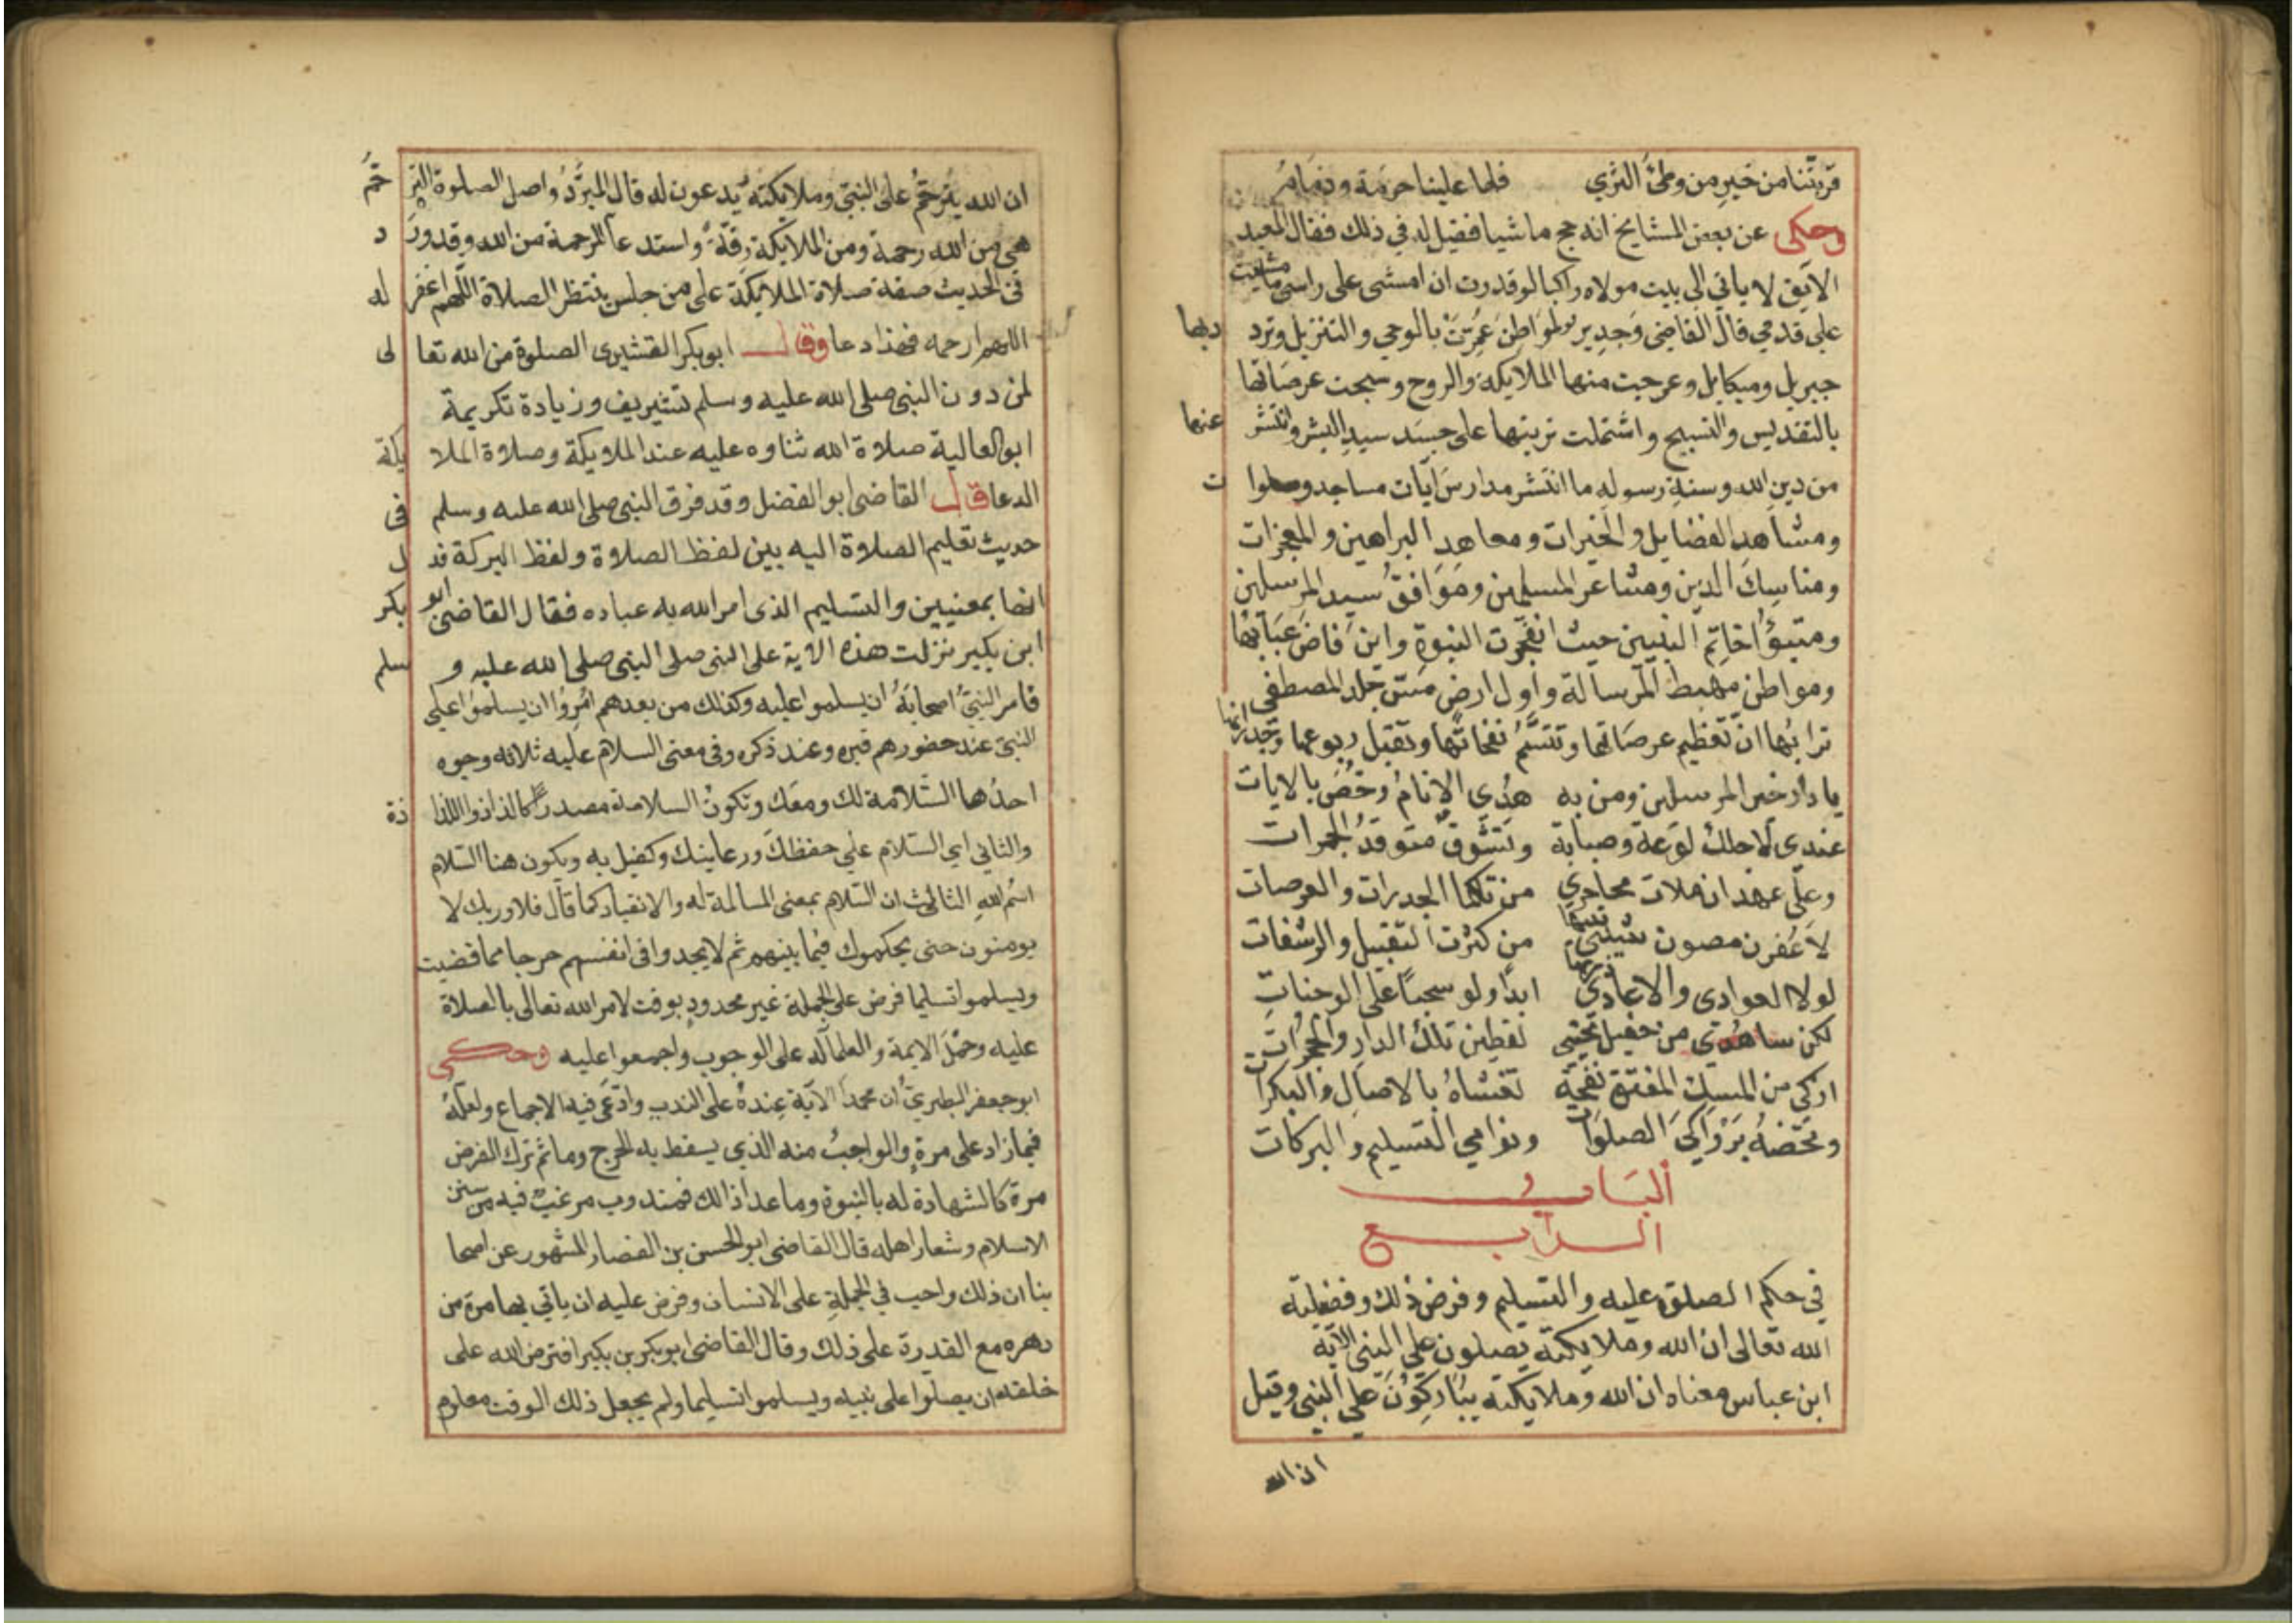 قربتنا من خير من وطئ الثري فلها علينا حرمة وذمام
وحكى عن بعض المشايخ انه حج ماشيا فقيل له في ذلك فقال العبد
الابق لا ياتي الى بيت مولاه راكبا لو قدرت ان امشى على راسي ما مشيت
على قدمي قال القاضي وجدير لمواطن عمرت بالوحي والتنزيل وتردد بها
جبريل وميكايل وعرجت منها الملايكة والروح وسبحت عرصاتها
بالتقديس والتسبيح واشتملت تربتها على جسد سيد البشر وانتشر عنها
من دين الله وسنة رسوله ما انتشر مدارس ايات مساجد وصلوات
ومشاهد الفضايل والخيرات ومعاهد البراهين والمعجزات
ومناسك الدين ومشاعر المسلمين ومواقف سيد المرسلين
ومتبوأ خاتم النبيين حيث انفجرت النبوة واين فاض عبابها
ومواطن مهبط الرسالة واول ارض مس جلد المصطفى
ترابها ان تعظيم عرصاتها وتتنسم نفحاتها وتقبل ربوعها وجدرانها
يا دار خير المرسلين ومن به هدي الانام وخص بالايات
عندي لاجلك لوعة وصبابة وتشوق متوقد الجمرات
وعلى عهد ان ملات محاجري من تلكما الجدرات والعرصات
لاعفرن مصون شيبتي بينها من كثرت التقبيل والرشفات
لولا العوادي والاعادي زرتها ابدا ولو سحبا على الوجنات
لكن ساهدي من حفيل تحيتي لقطين تلك الدار والحجرات
ازكى من المسك المفتق نفحة تغشاه بالاصال والبكرات
وتخصه بزواكي الصلوات ونوامي التسليم والبركات
الباب
الرابع
في حكم الصلوة عليه والتسليم وفرض ذلك وفضيلته
الله تعالى ان الله وملايكته يصلون على النبي الاية
ابن عباس معناه ان الله وملايكته يباركون على النبي وقيل
ان الله
ان الله يترحم على النبي وملايكته يدعون له قال المبرد واصل الصلوة الترحم
فهى من الله رحمة ومن الملايكة رقة واستدعا للرحمة من الله وقد ورد
فى الحديث صفة صلاة الملايكة على من جلس ينتظر الصلاة اللهم اغفر له
اللهم ارحمه فهذا دعا وقال ابو بكر القشيرى الصلوة من الله تعالى
لمن دون النبي صلى الله عليه وسلم تشريف وزيادة تكريمة
ابو العالية صلاة الله ثناوه عليه عند الملايكة وصلاة الملايكة
الدعا قال القاضى ابو الفضل وقد فرق النبي صلى الله عليه وسلم فى
حديث تعليم الصلاة اليه بين لفظ الصلاة ولفظ البركة فدل
انها بمعنيين والتسليم الذى امر الله به عباده فقال القاضى ابو بكر
ابن بكير نزلت هذه الاية على النبي صلى النبي صلى الله عليه وسلم
فامر النبي اصحابه ان يسلموا عليه وكذلك من بعدهم امروا ان يسلموا على
النبي عند حضورهم قبره وعند ذكره وفى معنى السلام عليه ثلاثه وجوه
احدها السلامة لك ومعك وتكون السلامة مصدرا كاللذاذ واللذاذة
والثاني اي السلام على حفظك ورعايتك وكفيل به ويكون هنا السلام
اسم الله الثالث ان السلام بمعنى المسالمة له والانقياد كما قال فلا وربك لا
يومنون حتى يحكموك فيما بينهم ثم لا يجدوا فى انفسهم حرجا مما قضيت
ويسلموا تسليما فرض على الجملة غير محدود بوقت لامر الله تعالى بالصلاة
عليه وحمل الايمة والعلما له على الوجوب واجمعوا عليه وحكى
ابو جعفر الطبري ان محمد الاية عنده على الندب وادعى فيه الاجماع ولعله
فيما زاد على مرة والواجب منه الذي يسقط به الحرج وماثم ترك الفرض
مرة كالشهادة له بالنبوة وما عدا ذالك فمندوب مرغب فيه من سنن
الاسلام وشعار اهله قال القاضى ابو الحسن بن القصار المشهور عن اصحا
بنا ان ذلك واجب في الجملة على الانسان وفرض عليه ان ياتي بها مرة من
دهره مع القدرة على ذلك وقال القاضى ابو بكر بن بكير افترض الله على
خلقه ان يصلوا على نبيه ويسلموا تسليما ولم يجعل ذلك الوقت معلوم